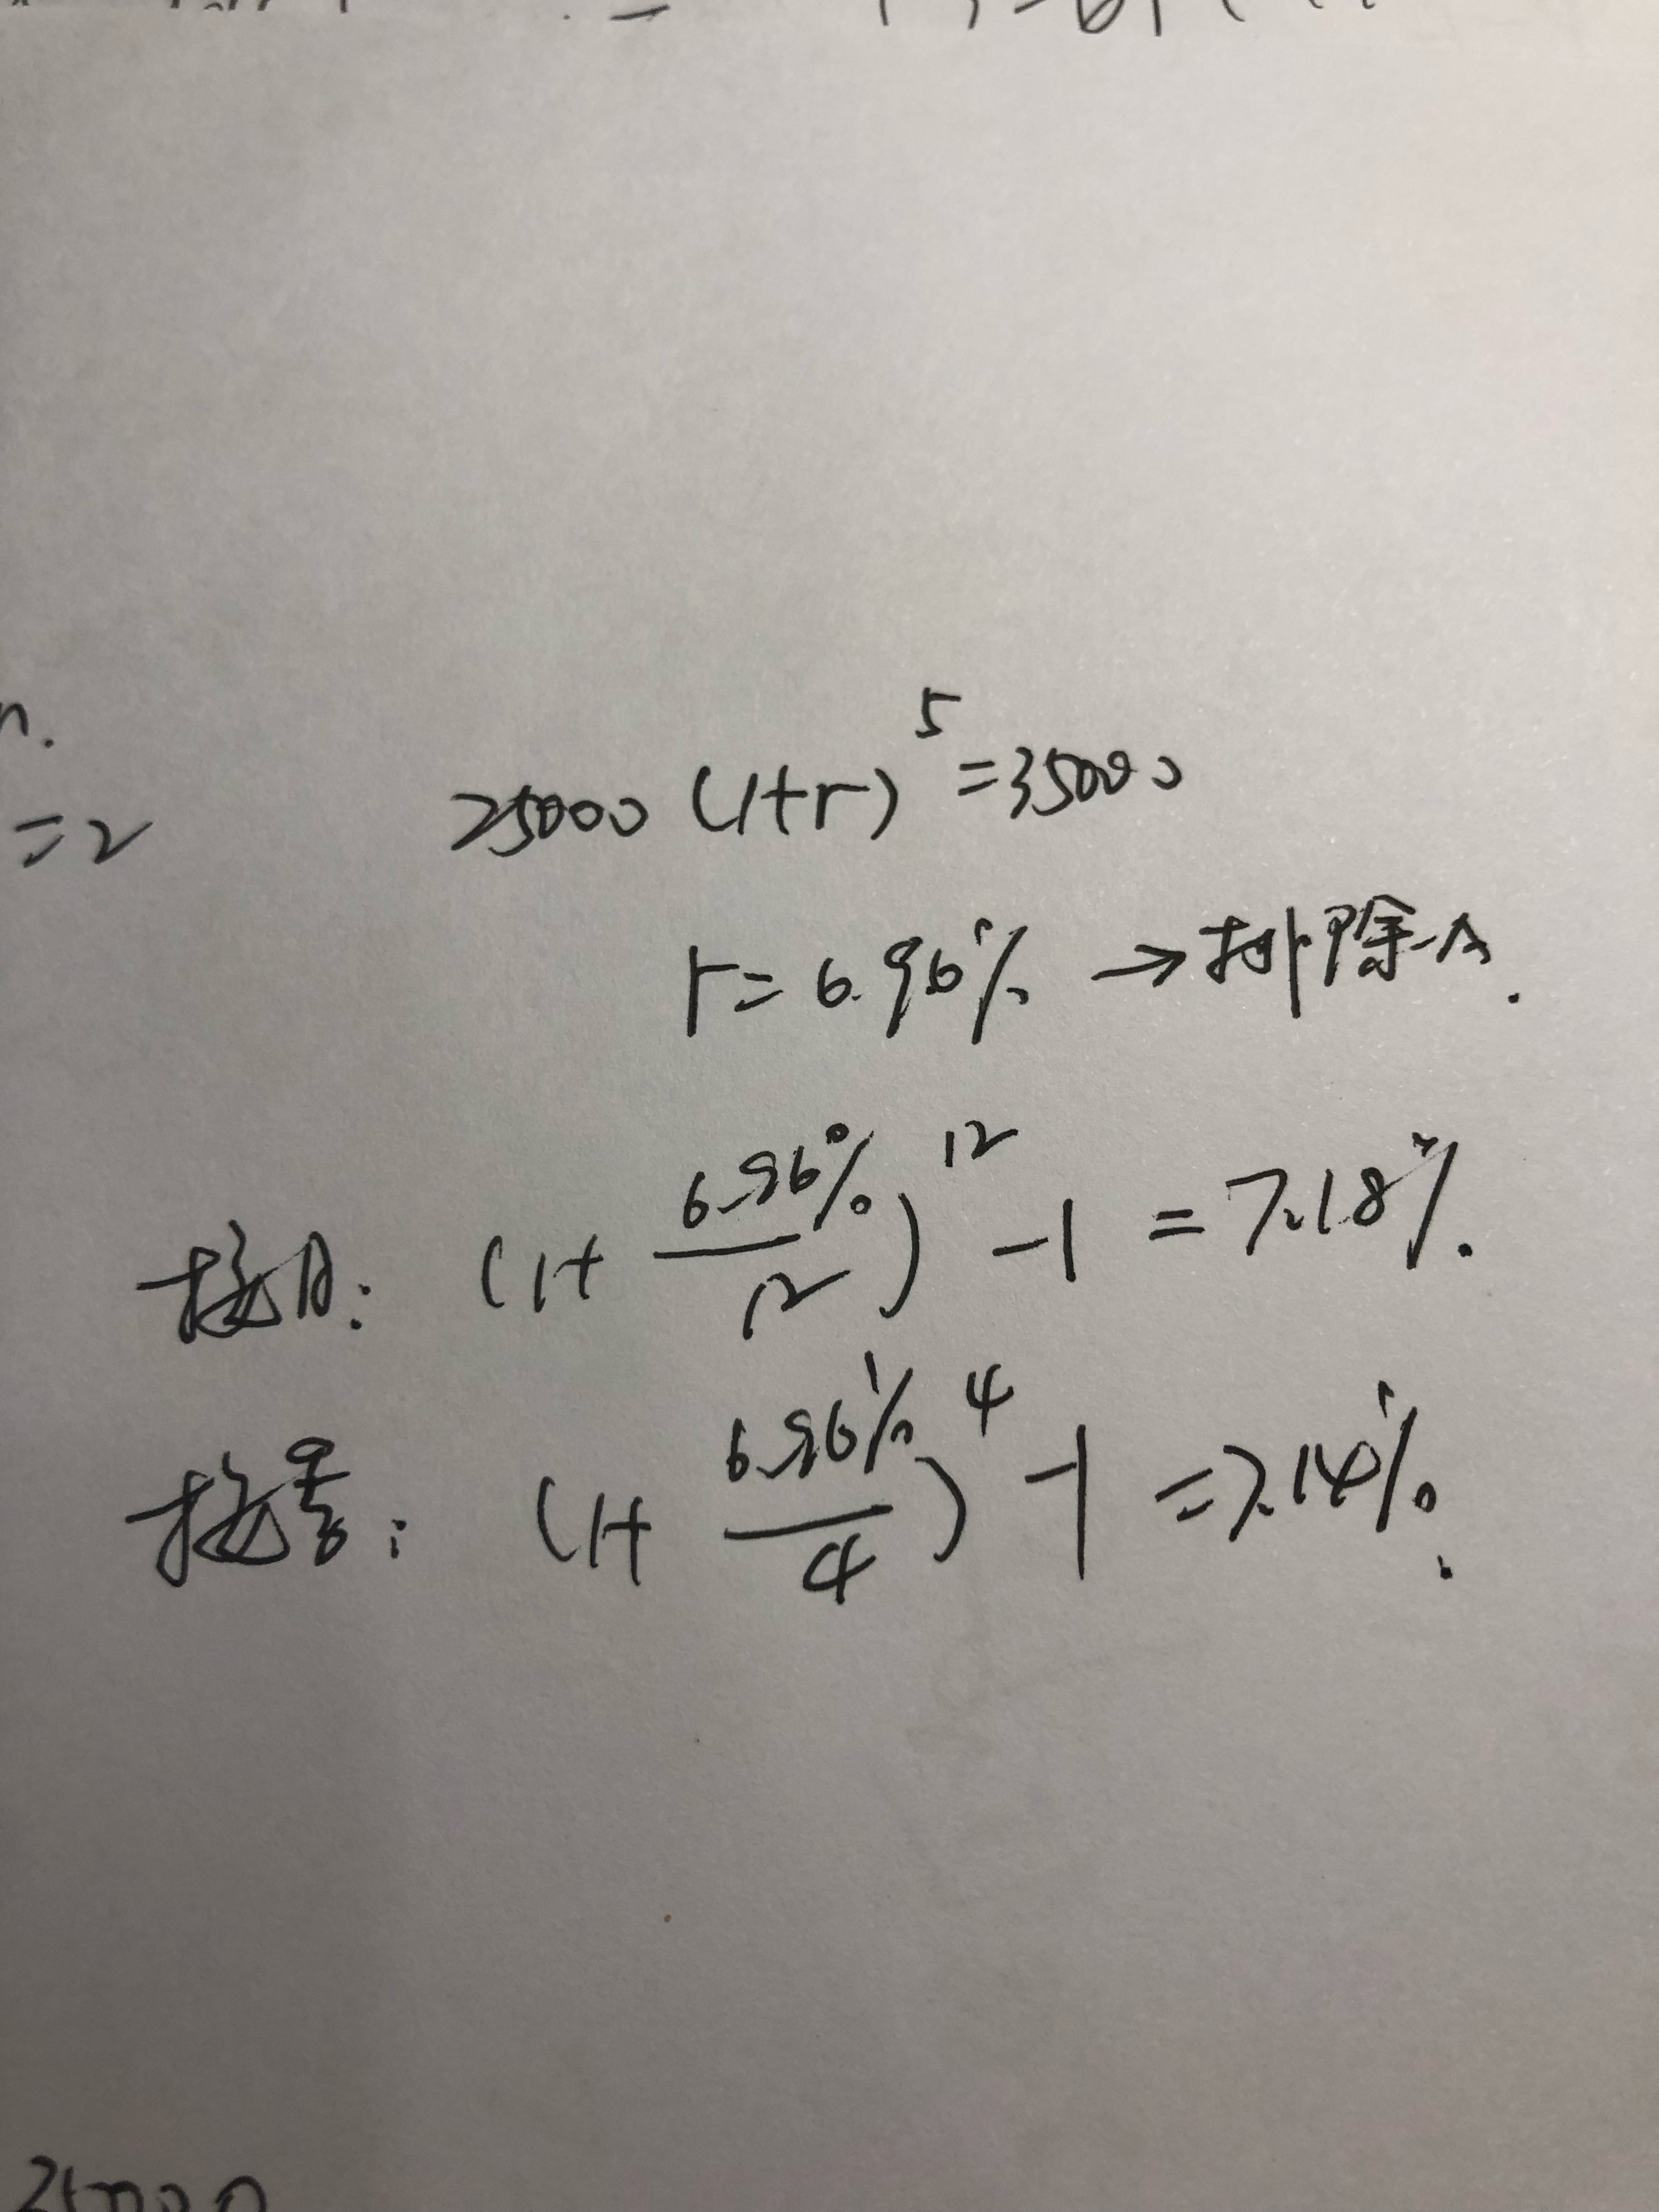 n.
=2
25000 (1+r)^5 = 35000
r = 6.96% → 排除A.
按月: (1+ 6.96%/12)^12 -1 = 7.18%.
按季: (1+ 6.96%/4)^4 -1 = 7.14%.